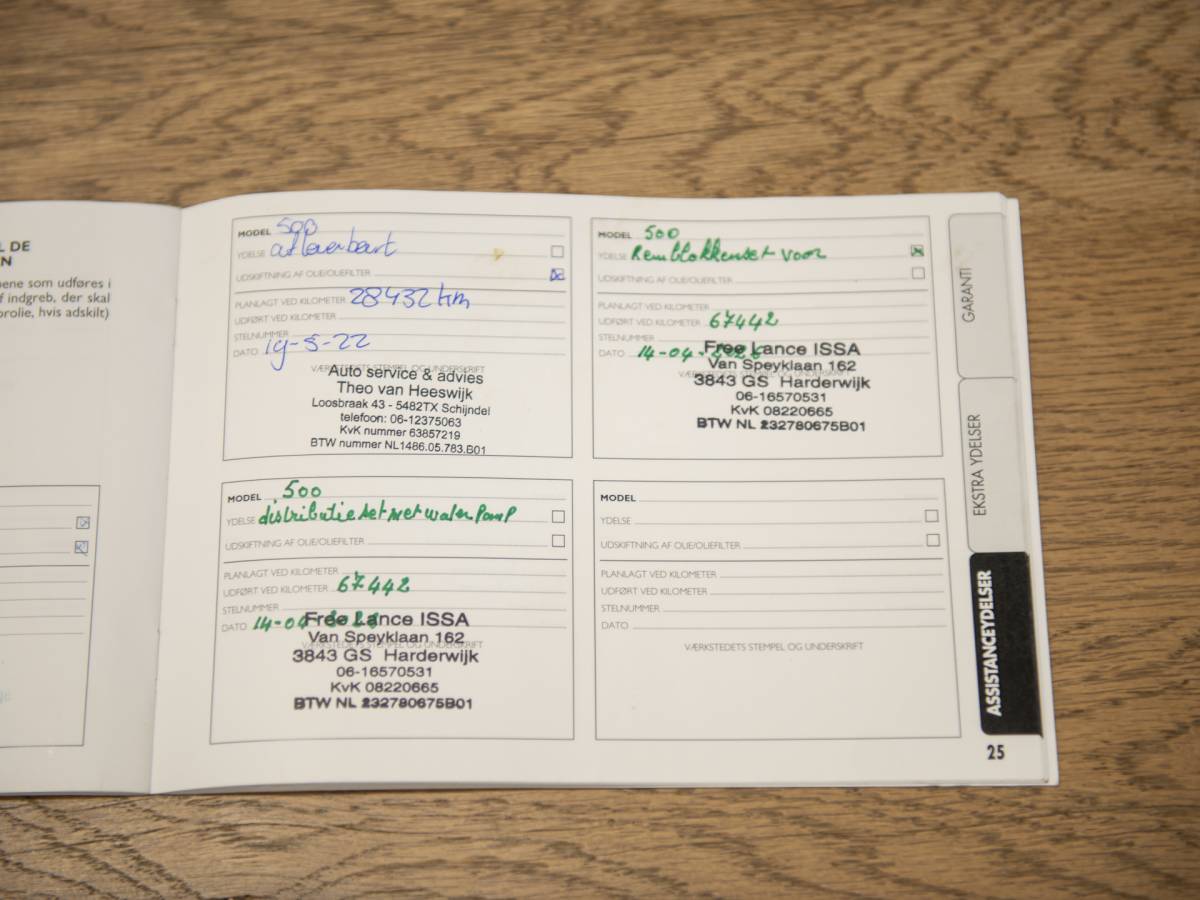 L DE
N
pene som udføres i
f indgreb, der skal
orolie, hvis adskilt)
MODEL 500
YDELSE afleverbeurt
UDSKIFTNING AF OLIE/OLIEFILTER
PLANLAGT VED KILOMETER 28432 km
UDFØRT VED KILOMETER
STELNUMMER
DATO 19-5-22
VÆRKSTEDETS STEMPEL OG UNDERSKRIFT
Auto service & advies
Theo van Heeswijk
Loosbraak 43 - 5482TX Schijndel
telefoon: 06-12375063
KvK nummer 63857219
BTW nummer NL1486.05.783.B01
MODEL 500
YDELSE Remblokkenset voor
UDSKIFTNING AF OLIE/OLIEFILTER
PLANLAGT VED KILOMETER
UDFØRT VED KILOMETER 67442
STELNUMMER
DATO 14-04-
VÆRKSTEDETS STEMPEL OG UNDERSKRIFT
Free Lance ISSA
Van Speyklaan 162
3843 GS Harderwijk
06-16570531
KvK 08220665
BTW NL 232780675B01
MODEL 500
YDELSE distributie set met water pomp
UDSKIFTNING AF OLIE/OLIEFILTER
PLANLAGT VED KILOMETER
UDFØRT VED KILOMETER 67442
STELNUMMER
DATO 14-04
VÆRKSTEDETS STEMPEL OG UNDERSKRIFT
Free Lance ISSA
Van Speyklaan 162
3843 GS Harderwijk
06-16570531
KvK 08220665
BTW NL 232780675B01
MODEL
YDELSE
UDSKIFTNING AF OLIE/OLIEFILTER
PLANLAGT VED KILOMETER
UDFØRT VED KILOMETER
STELNUMMER
DATO
VÆRKSTEDETS STEMPEL OG UNDERSKRIFT
GARANTI
EKSTRA YDELSER
ASSISTANCEYDELSER
25